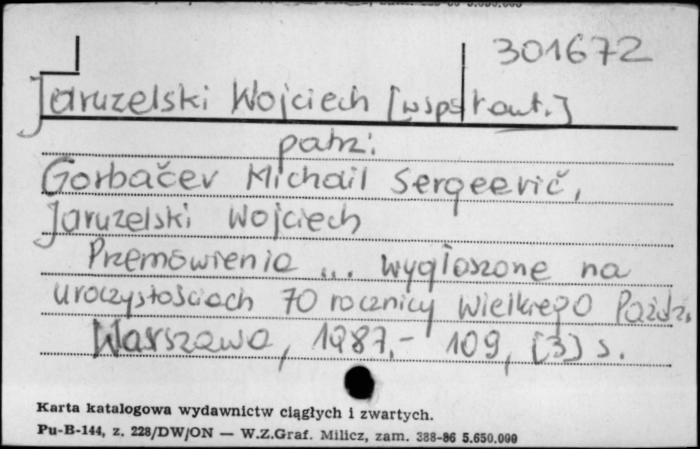 301672
Jaruzelski Wojciech [współaut.]
patrz:
Gorbačev Michail Sergeevič,
Jaruzelski Wojciech
Przemówienia ... wygłoszone na
uroczystościach 70 rocznicy Wielkiego Paźdz.
Warszawa, 1987,- 109, [3] s.
Karta katalogowa wydawnictw ciągłych i zwartych.
Pu-B-144, z. 228/DW/ON — W.Z.Graf. Milicz, zam. 388-86 5.650.000